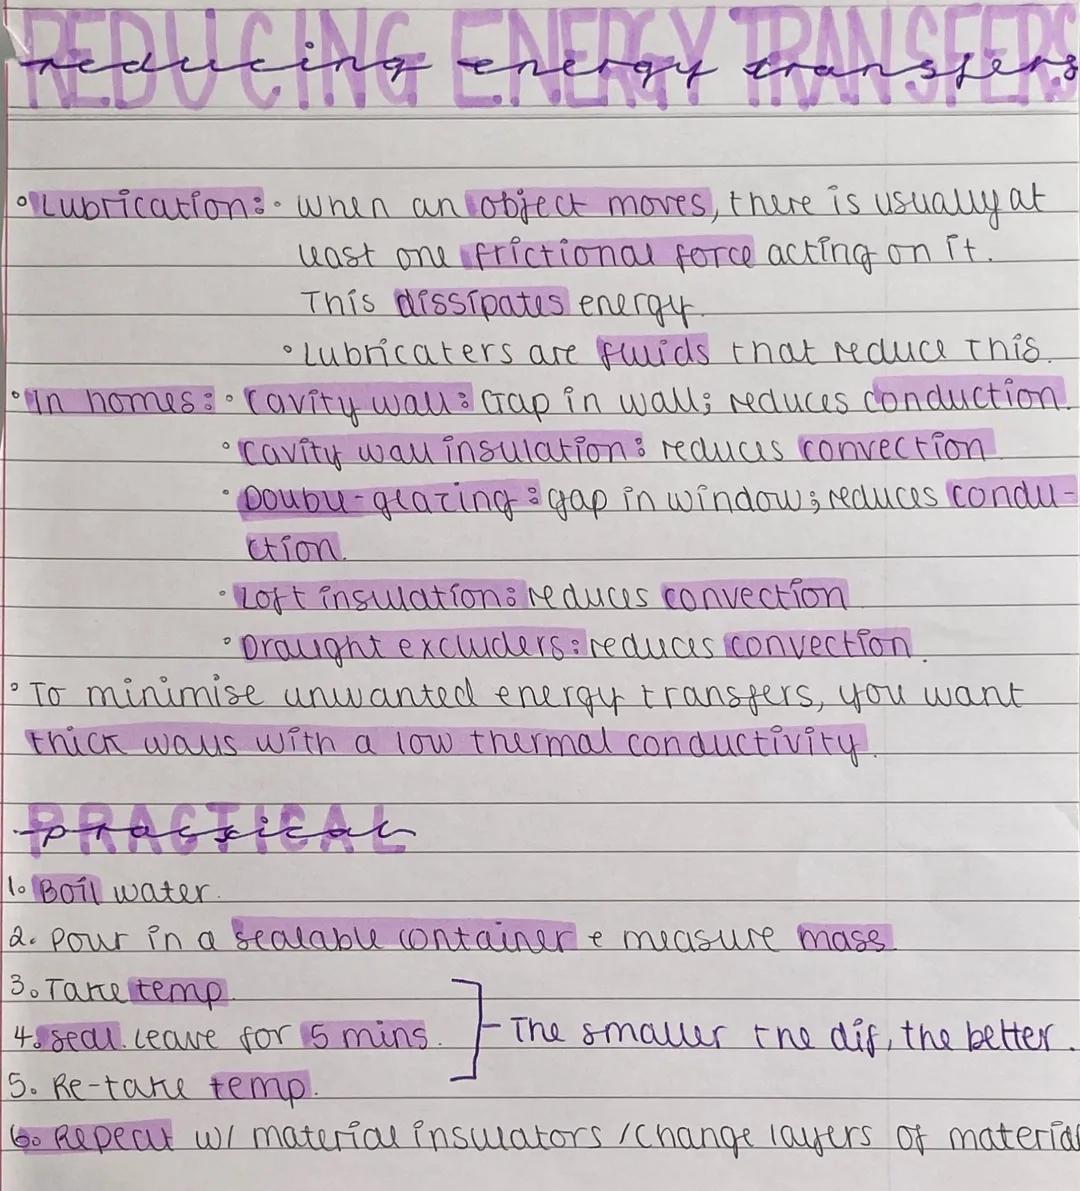 REDUCING ENERGY TRANSFERS
reducing energy transfers
° Lubrication: · When an object moves, there is usually at
least one frictional force acting on it.
This dissipates energy.
° Lubricaters are fluids that reduce this.
° In homes: ° Cavity wall: Gap in wall; reduces conduction.
° Cavity wall insulation: reduces convection
° Double-glazing: gap in window; reduces condu-
ction.
° Loft insulation: reduces convection
° Draught excluders: reduces convection.
° To minimise unwanted energy transfers, you want
thick walls with a low thermal conductivity.
PRACTICAL
practical
1. Boil water.
2. Pour in a sealable container & measure mass.
3. Take temp.
4. Seal. Leave for 5 mins.
The smaller the dif, the better.
5. Re-take temp.
6. Repeat w/ material insulators / change layers of material